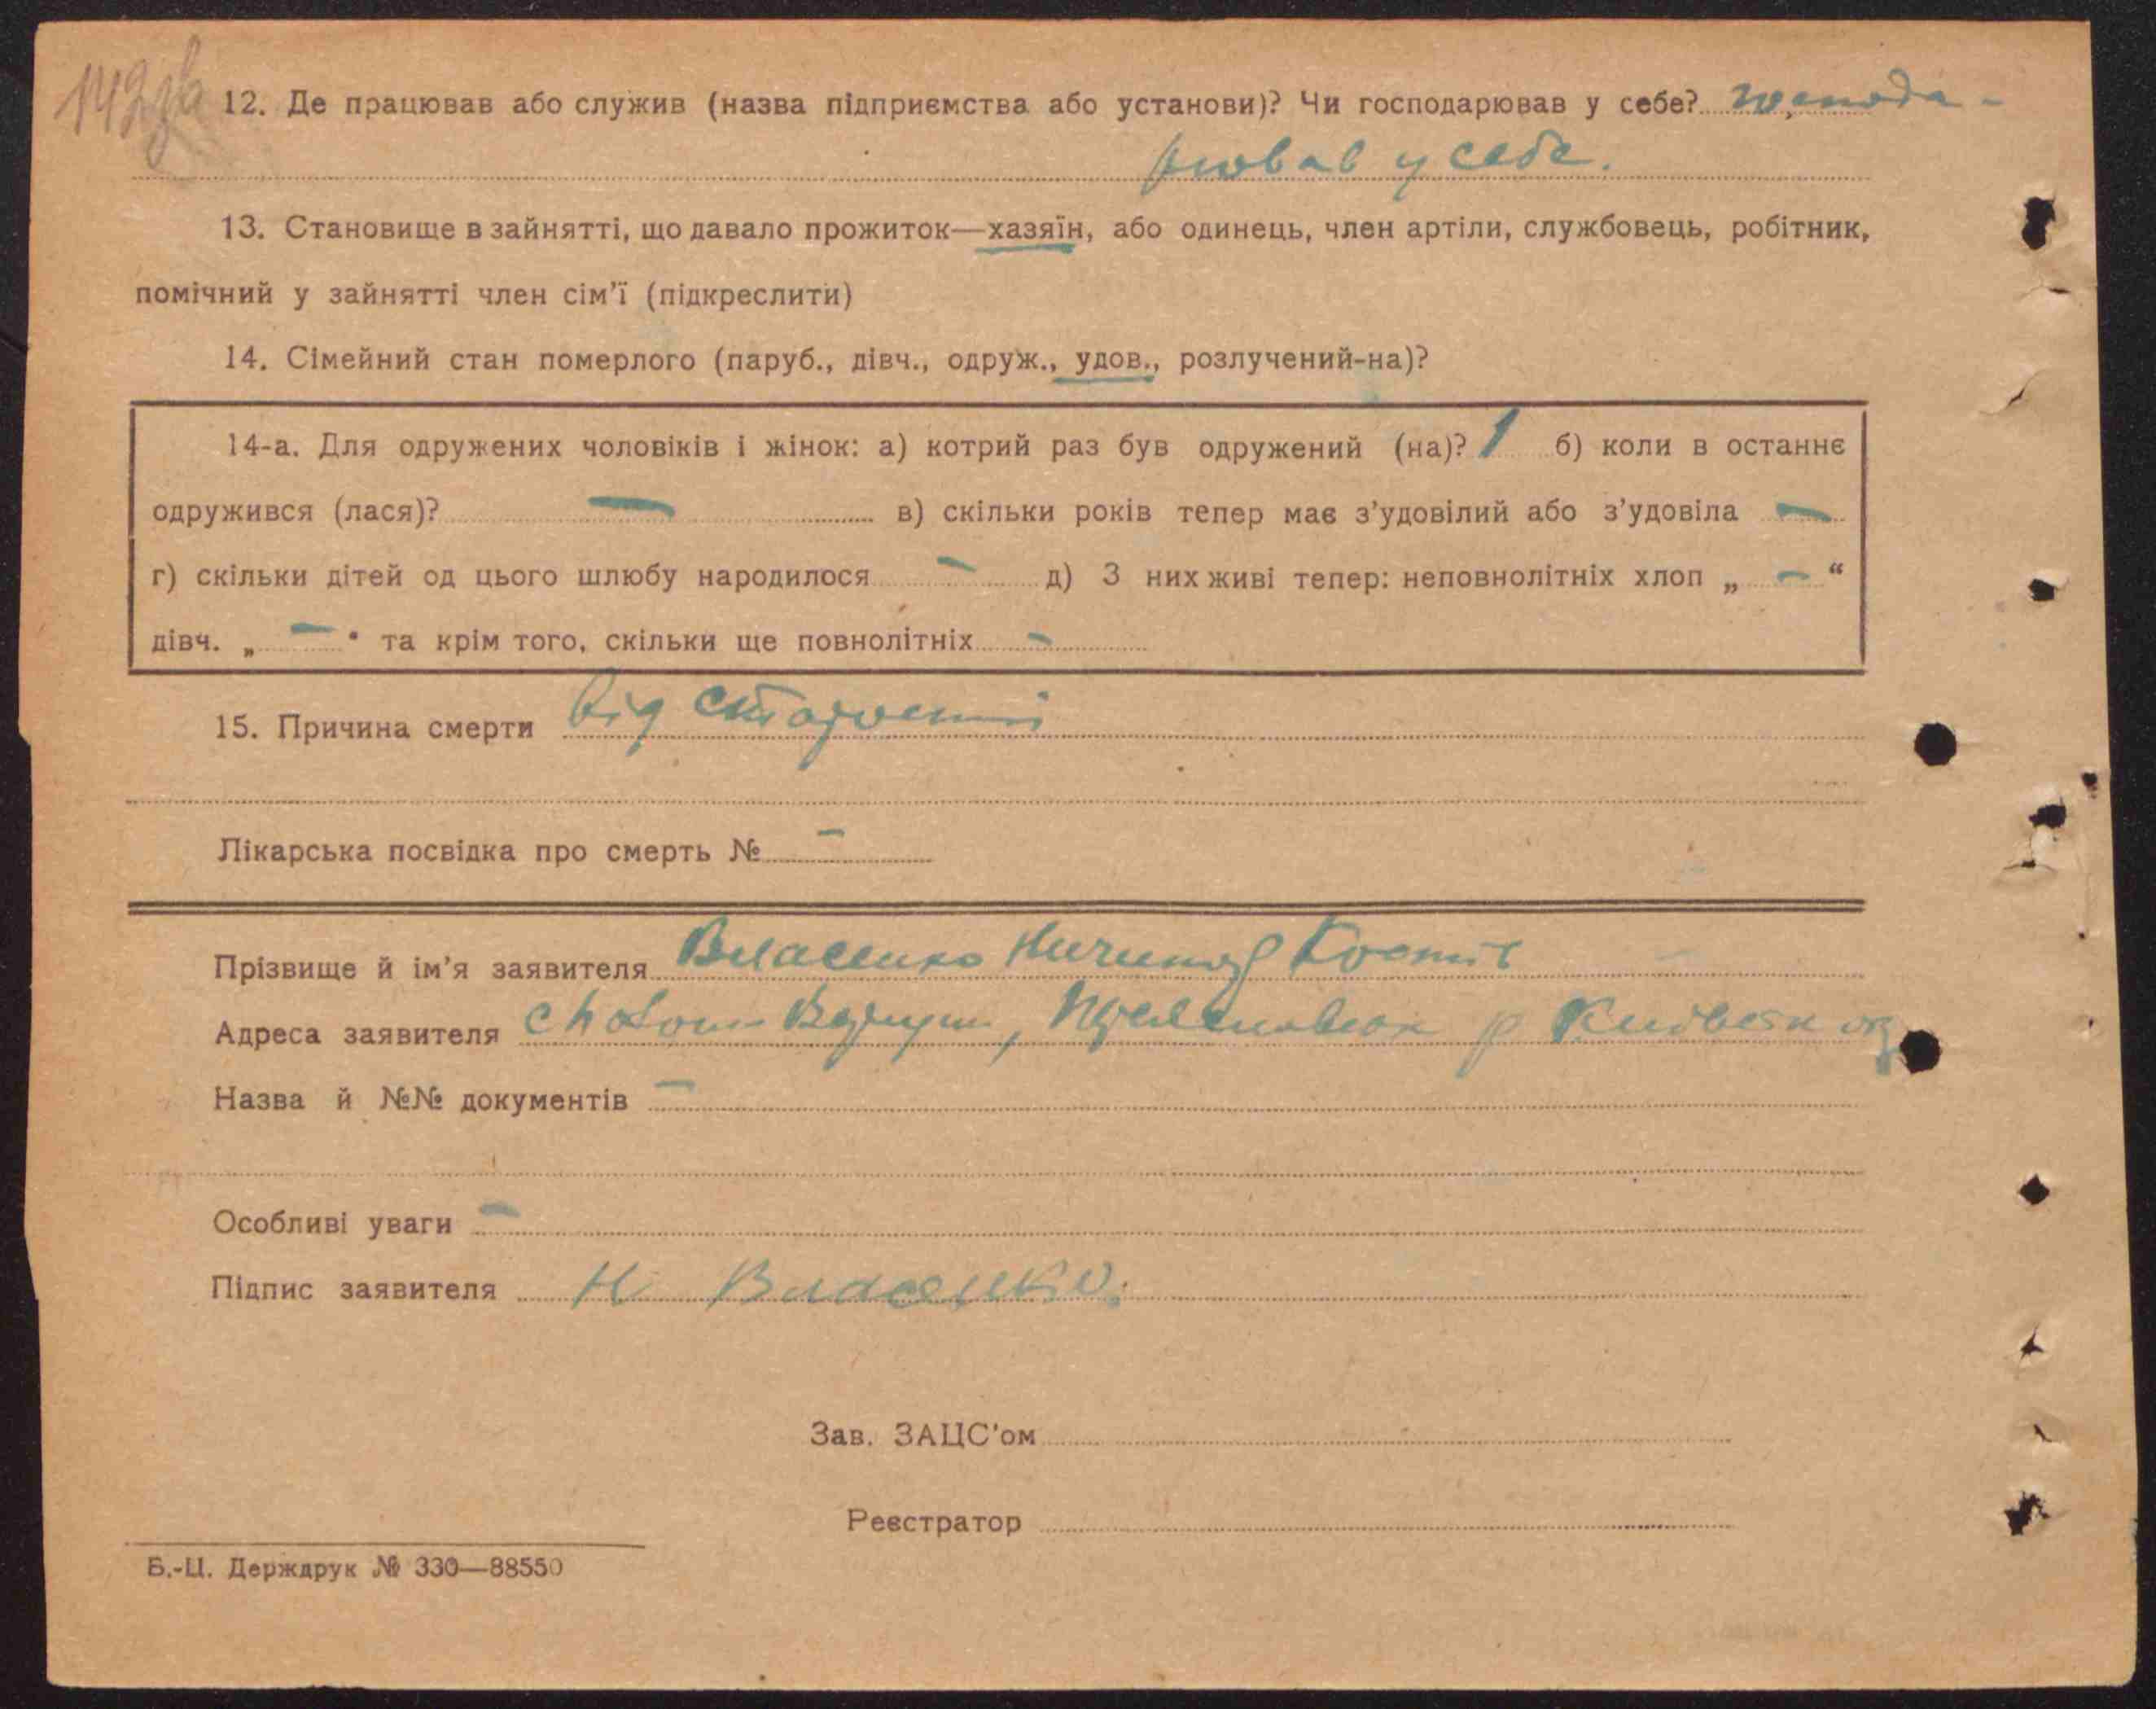 142 зв
12. Де працював або служив (назва підприємства або установи)? Чи господарював у себе? господа-
рював у себе.
13. Становище в зайнятті, що давало прожиток—хазяїн, або одинець, член артіли, службовець, робітник,
помічний у зайнятті член сім’ї (підкреслити)
14. Сімейний стан померлого (паруб., дівч., одруж., удов., розлучений-на)?
14-а. Для одружених чоловіків і жінок: а) котрий раз був одружений (на)? 1 б) коли в останнє
одружився (лася)? — в) скільки років тепер має з’удовілий або з’удовіла —
г) скільки дітей од цього шлюбу народилося — д) З них живі тепер: неповнолітніх хлоп „ — “
дівч. „ — “ та крім того, скільки ще повнолітніх —
15. Причина смерти від старости
Лікарська посвідка про смерть № —
Прізвище й ім’я заявителя Власенко Ничипор Костів
Адреса заявителя р Київськ ок
Назва й №№ документів —
Особливі уваги —
Підпис заявителя Н Власенко.
Зав. ЗАЦС’ом
Реєстратор
Б.-Ц. Держдрук № 330—88550